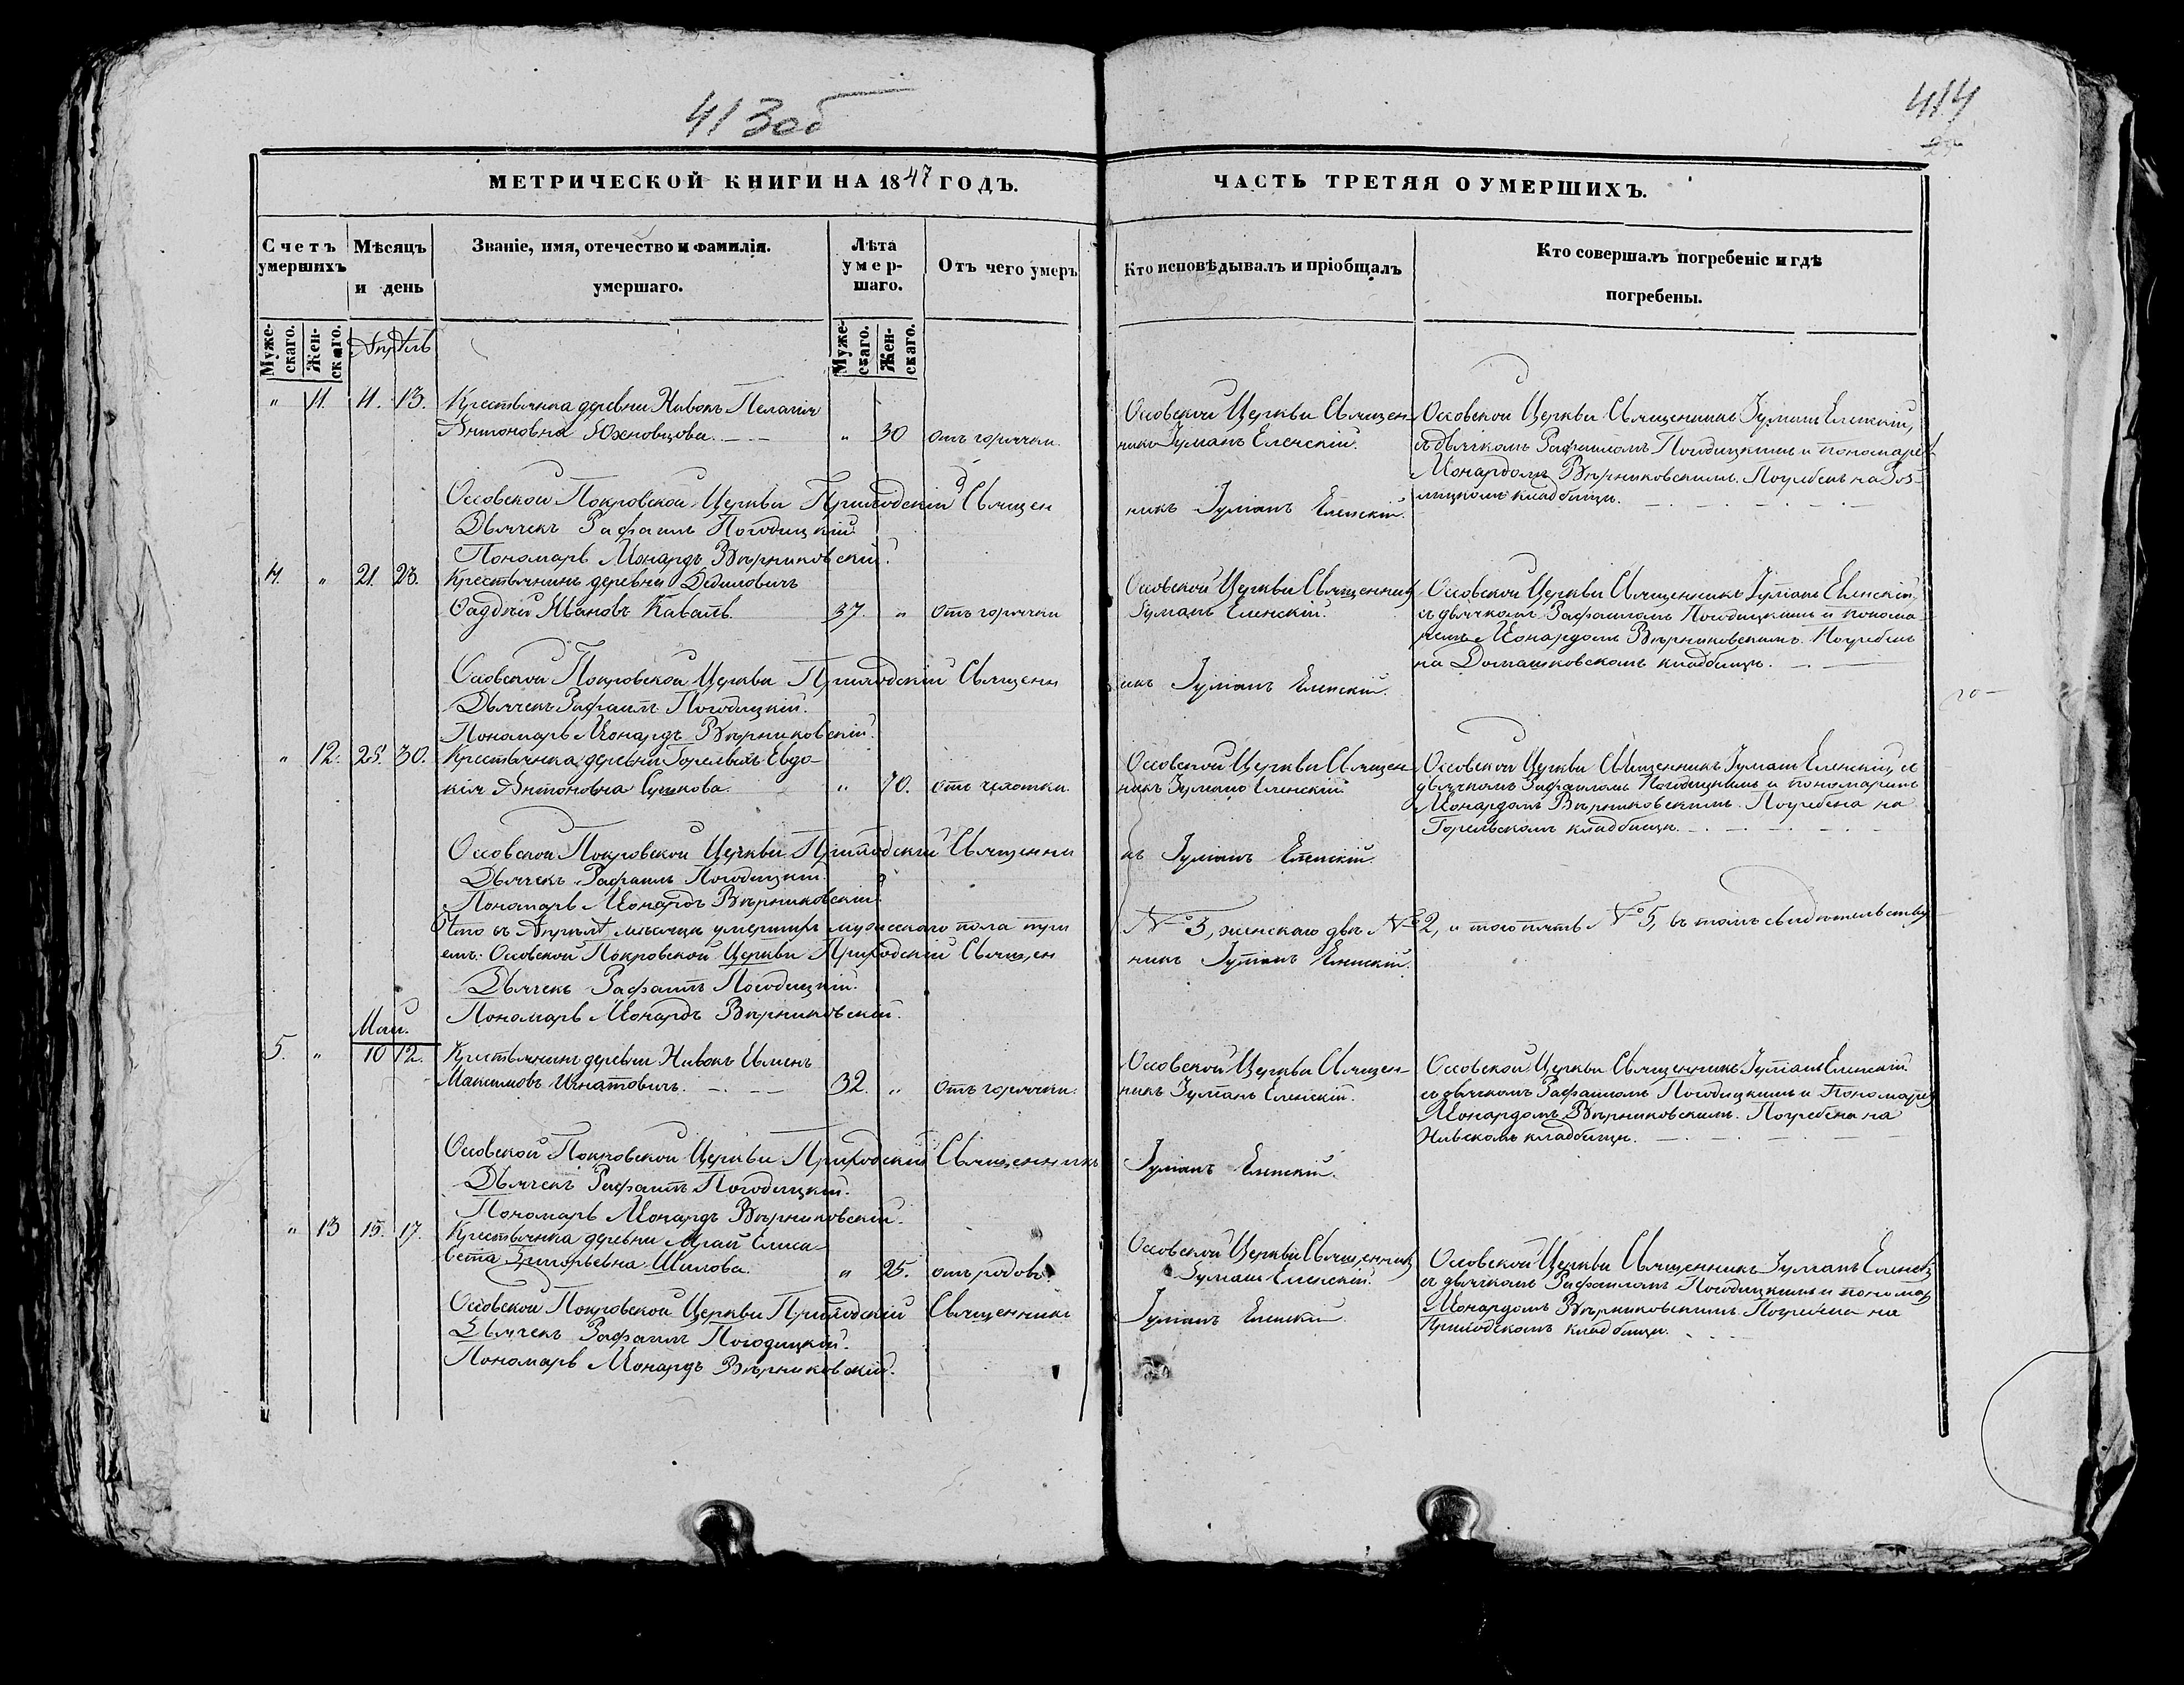 413об
414
МЕТРИЧЕСКОЙ КНИГИ НА 1847 ГОДЪ.
ЧАСТЬ ТРЕТЯЯ О УМЕРШИХЪ.
Счетъ умершихъ
Мѣсяцъ и день
Званіе, имя, отечество и фамилія. умершаго.
Лѣта умер-шаго.
Отъ чего умеръ
Кто исповѣдывалъ и пріобщалъ
Кто совершалъ погребеніе и гдѣ погребены.
Муже-скаго.
Жен-скаго.
Апрѣль
Муже-скаго.
Жен-скаго.
" 11. 11. 13. Крестьянка деревни Нивокъ Пелагія
Антоновна Юхновцова. " 30 отъ горячки.
Оссовской Церкви Священ-
никъ Іуліанъ Еленскій.
Оссовской Церкви Священникъ Іуліанъ Еленскій,
съ дьячкомъ Рафаиломъ Погодицкимъ и пономаремъ
Леонардомъ Вѣрниковскимъ. Погребенъ на
кладбищѣ.
Оссовской Покровской Церкви Приходскій Священ
никъ Іуліанъ Еленскій.
Дьячекъ Рафаилъ Погодицкій.
Пономарь Леонардъ Вѣрниковскій.
4. " 21. 23. Крестьянинъ деревни Дедиловичъ
Фаддей Ивановъ Каваль. 37. " Отъ горячки
Оссовской Церкви Священникъ
Іуліанъ Еленскій.
Оссовской Церкви Священникъ Іуліанъ Еленскій,
съ дьячкомъ Рафаиломъ Погодицкимъ и понома-
ремъ Леонардомъ Вѣрниковскимъ. Погребенъ
на Домашковскомъ кладбищѣ.
Оссовской Покровской Церкви Приходскій Священн
икъ Іуліанъ Еленскій.
Дьячекъ Рафаилъ Погодицкій.
Пономарь Леонардъ Вѣрниковскій.
" 12. 25. 30. Крестьянка деревни Горелвихъ Евдо-
кія Антоновна " 70. отъ чахотки.
Оссовской Церкви Священ-
никъ Іуліанъ Еленскій
Оссовской Церкви Священникъ Іуліанъ Еленскій, съ
дьячкомъ Рафаиломъ Погодицкимъ и пономаремъ
Леонардомъ Вѣрниковскимъ. Погребена на
Горельскомъ кладбищѣ.
Оссовской Покровской Церкви Приходскій Священни
къ Іуліанъ Еленскій.
Дьячекъ Рафаилъ Погодицкій.
Пономарь Леонардъ Вѣрниковскій.
Что въ Апрѣлѣ мѣсяцѣ умершихъ мужескаго пола три
№ 3, женскаго двѣ № 2, и того пять № 5, въ томъ свидѣтельству
емъ: Оссовской Покровской Церкви Приходскій Священ
никъ Іуліанъ Еленскій.
Дьячекъ Рафаилъ Погодицкій.
Пономарь Леонардъ Вѣрниковскій.
Май.
5. " 10 12. Крестьянинъ деревни Нивокъ
Максимовъ Игнатовичъ. 32. " Отъ горячки.
Оссовской Церкви Священ-
никъ Іуліанъ Еленскій.
Оссовской Церкви Священникъ Іуліанъ Еленскій
съ дьячкомъ Рафаиломъ Погодицкимъ и Пономаремъ
Леонардомъ Вѣрниковскимъ. Погребена на
Нивскомъ кладбищѣ.
Оссовской Покровской Церкви Приходскій Священникъ
Іуліанъ Еленскій.
Дьячекъ Рафаилъ Погодицкій.
Пономарь Леонардъ Вѣрниковскій.
" 13 15. 17. Крестьянка деревни Мрай Елиса-
вета Григорьевна Шилова. " 25. отъ родовъ.
Оссовской Церкви Священникъ
Іуліанъ Еленскій.
Оссовской Церкви Священникъ Іуліанъ Еленскій
съ дьячкомъ Рафаиломъ Погодицкимъ и пономар
Леонардомъ Вѣрниковскимъ. Погребена на
Приходскомъ кладбищѣ.
Оссовской Покровской Церкви Приходскій Священникъ
Іуліанъ Еленскій.
Дьячекъ Рафаилъ Погодицкій.
Пономарь Леонардъ Вѣрниковскій.